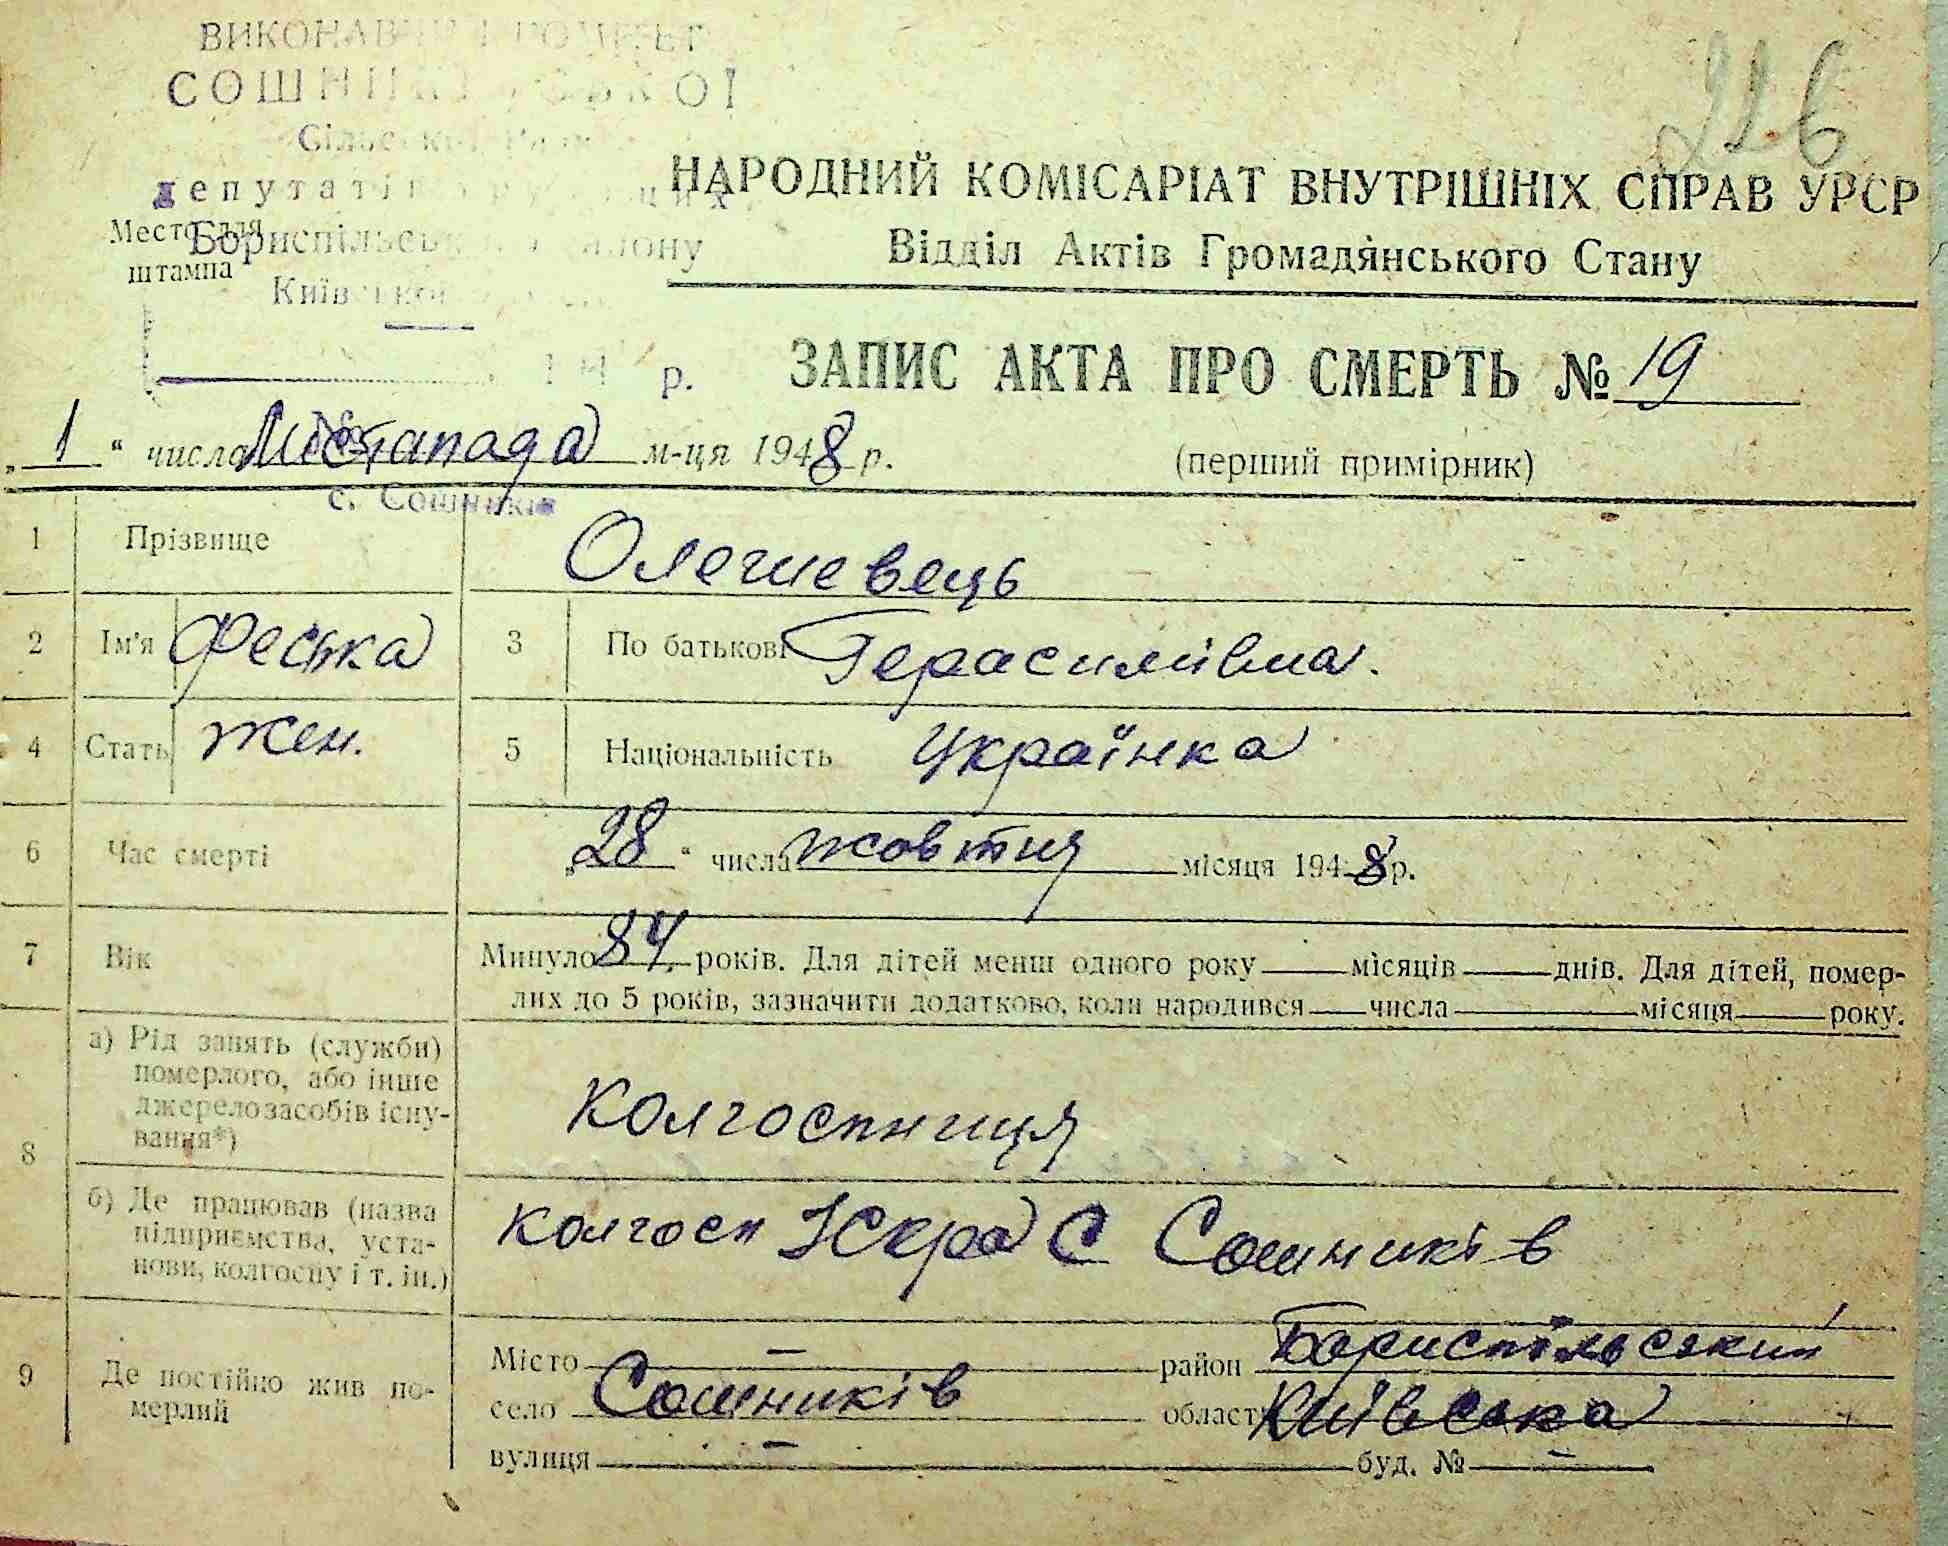 226
ВИКОНАВЧИЙ КОМІТЕТ
СОШНИКІВСЬКОЇ
Сільської Ради
депутатів трудящих
Бориспільського району
Київської
Место для
штампа
НАРОДНИЙ КОМІСАРІАТ ВНУТРІШНІХ СПРАВ УРСР
Відділ Актів Громадянського Стану
194 р.
ЗАПИС АКТА ПРО СМЕРТЬ № 19
„ 1 “ числа Листапада м-ця 1948 р.
(перший примірник)
с. Сошників
1 Прізвище Олешевець
2 Ім'я Феська 3 По батькові Герасимівна.
4 Стать жен. 5 Національність Українка
6 Час смерті „28“ числа жовтня місяця 1948 р.
7 Вік Минуло 84 років. Для дітей менш одного року місяців днів. Для дітей, помер-
лих до 5 років, зазначити додатково, коли народився числа місяця року.
8 а) Рід занять (служби)
померлого, або інше
джерело засобів існу-
вання*)
Колгоспниця
б) Де працював (назва
підприємства, уста-
нови, колгоспу і т. ін.)
колгосп Іскра С Сошників
9 Де постійно жив по-
мерлий
Місто — район Бориспільський
село Сошників область Київська
вулиця — буд. № —